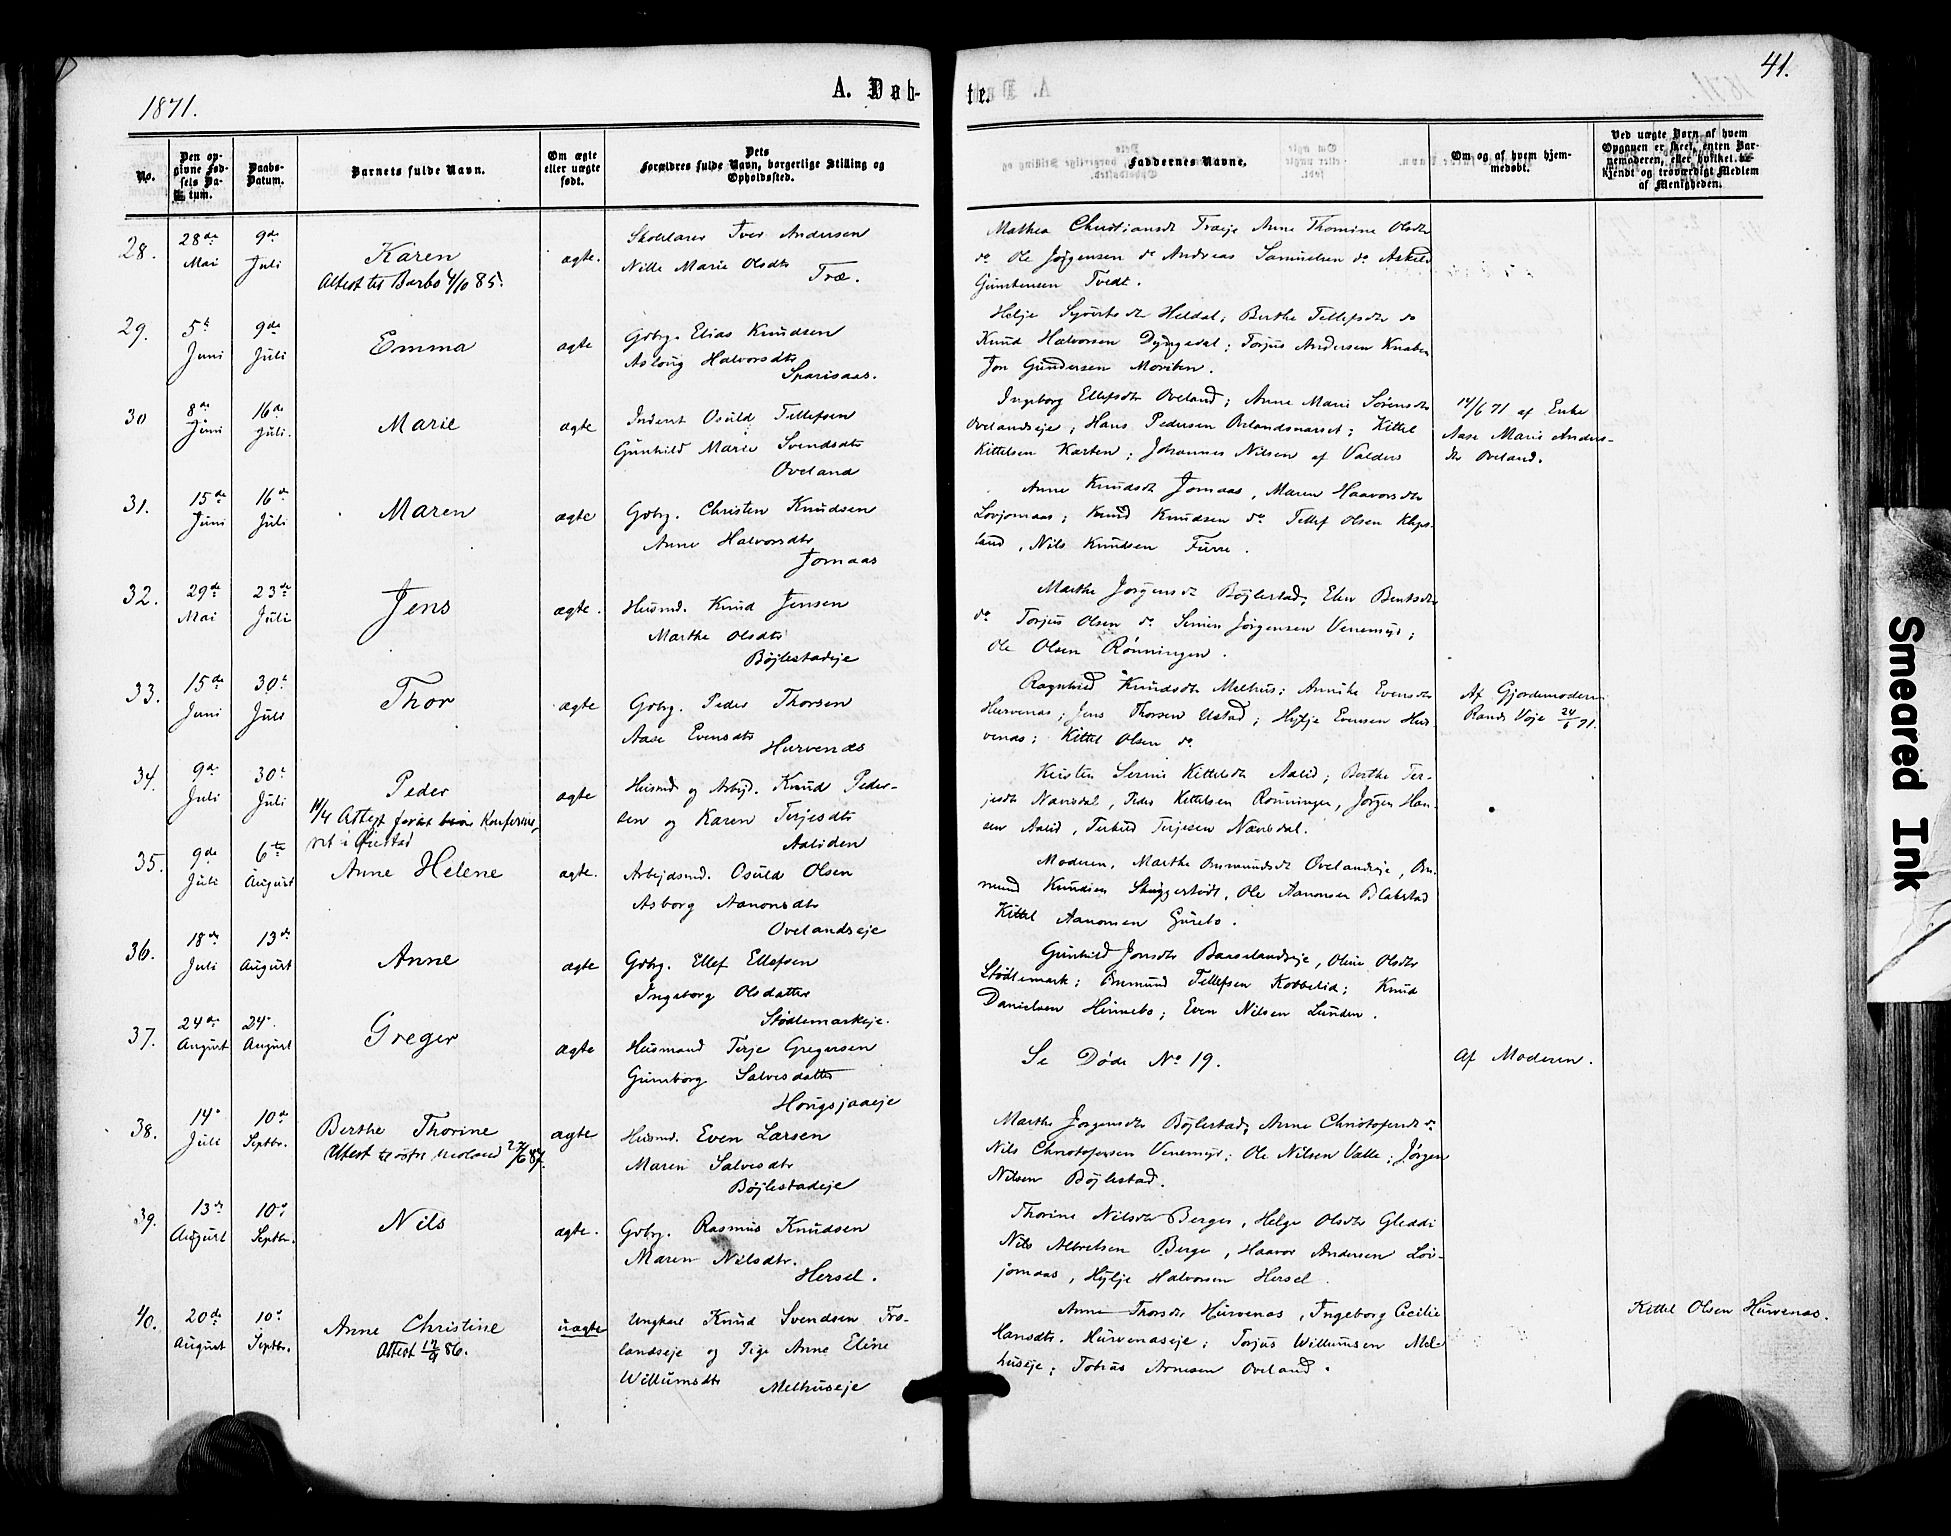 1871.
A. Døb-
te.
41.
No.
Den op-
givne Fød-
sels Da-
tum.
Daabs-
Datum.
Barnets fulde Navn.
Om ægte
eller uægte
født.
Dets
Forældres fulde Navn, borgerlige Stilling og
Opholdssted.
Faddernes Navne.
Om og af hvem hjem-
medøbt.
Ved uægte Børn af hvem
Opgaven er skeet, enten Bar-
nemoderen, eller hvilket be-
kjendt og troværdigt Medlem
af Menigheden.
28.
28de
Mai
9de
Juli
Karen
Attest til Barbo 4/10 85.
ægte.
Skolelærer Iver Andersen
Nille Marie Olsdtr
Træ.
Mathea Christiansdtr Træeje Anne Thomine Olsdtr
do Ole Jørgensen do Andreas Samuelsen do Askild
Gunstensen Tvedt.
29.
5te
Juni
9de
Juli
Emma
ægte
Gbrg. Elias Knudsen
Asloug Halvorsdtr
Sparisaas.
Helje Syvertsdtr Heldal; Berthe Tellefsdtr do
Knud Halvorsen Dyngedal; Torjus Andersen Knaben
Jon Gundersen
30
8de
Juni
16de
Juli.
Marie
ægte
Inderst Osuld Tellefsen
Gunhild Marie Svendsdtr
Oveland
Ingeborg Ellefsdtr Oveland; Anne Marie Sørensdtr
Ovelandseje; Hans Pedersen; Kittel
Kittelsen Karten; Johannes Nilsen af Valders
14/6 71 af Enke
Aase Marie Anders-
dtr Oveland.
31.
15de
Juni
16de
Juli
Maren
ægte
Gbrg. Christen Knudsen
Anne Halvorsdtr
Jomaas
Anne Knudsdtr Jomaas, Maren Haavorsdtr
Lovjomaas; Knud Knudsen do Tellef Olsen Kleps-
land, Nils Knudsen Furre.
32.
29de
Mai
23de
Juli
Jens
ægte.
Husmd. Knud Jensen
Marthe Olsdtr
Bøjlestadeje
Marthe Jørgensdtr Bøjlestad, Elen Bentsdtr
do Torjus Olsen do Jørgensen Venemyr;
Ole Olsen Rønningen.
33.
15de
Juni
30te
Juli
Thor
ægte
Gbrg. Peder Thorsen
Aase Evensdtr
Hurvenes
Ragnhild Knudsdtr Melhus; Annike Evensdtr
Hurvenas; Jens Thorsen Ustad; Hylje Evensen Hur-
venas; Kittel Olsen do
Af Gjordemoderen
Rands Voje 24/6 71.
34.
9de
Juli
30te
Juli
Peder
Attest
ret i Øiestad
ægte
Husmd og Arbjd. Knud Peder-
sen og Karen Terjesdtr
Aaliden
Kirsten Serine Kittelsdtr Aalid; Berthe Ter-
jesdtr Næversdal, Peder Kittelsen Rønningen, Jørgen Han-
sen Aalid, Terkild Terjesen Næversdal.
35.
9de
Juli
6te
August
Anne Helene
ægte.
Arbejdsmd. Osuld Olsen
Asborg Aanonsdtr
Ovelandseje
Moderen, Marthe Omundsdtr Ovelandseje, Om-
mund Knudsen Skuggerstedt, Ole Aanonsen Blakstad
Kittel Aanonsen Gurebo.
36.
18de
Juli
13de
August
Anne
ægte
Gbrg. Ellef Ellefsen
Ingeborg Olsdatter
Stødlemarkeje.
Gunhild Jonsdtr Baaselandseje, Oline Olsdtr
Stødlemark; Omund Tellefsen Kobbelid; Knud
Danielsen Hinnebo; Even Nilsen Lunden.
37.
24de
August
24.
August
Greger
ægte
Husmand Terje Gregersen
Gunborg Salvesdatter
Hougsjaaeje
Se Døde No 19.
Af Moderen.
38.
14
Juli
10de
Septbr.
Berthe Thorine
Attest til østre Moland 23/6 87.
ægte
Husmd. Even Larsen
Maren Salvesdtr
Bøjlestadeje
Marthe Jørgensdtr Bøjlestad, Anne Christofersdtr do
Nils Christofersen Venemyr; Ole Nilsen Valle; Jørgen
Nilsen Bøjlestad.
39.
13de
August
10de
Septbr.
Nils
ægte.
Gbrg. Rasmus Knudsen
Maren Nilsdtr.
Hersel.
Thorine Nilsdtr Berge, Helge Olsdtr Gleddi
Nils Albretsen Berge, Haavor Andersen Lov-
jomaas, Hylje Halvorsen Hersel.
40.
20de
August
10de
Septbr.
Anne Christine
Attest 17/9 86.
uægte
Ungkarl Knud Svendsen Fro-
landseje og Pige Anne Eline
Willumsdtr Melhuseje
Anne Thorsdtr Hurvenas, Ingeborg Cecilie
Hansdtr. Hurvenaseje; Torjus Willumsen Mel-
huseje; Tobias Arnesen Oveland.
Kittel Olsen Hurvenas.
Smeared Ink